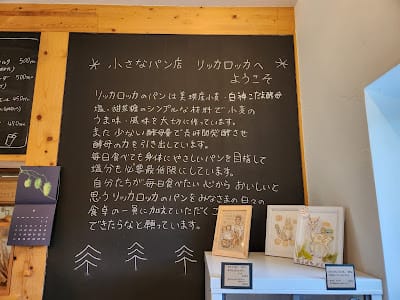 ＊小さなパン店 リッカロッカへ＊
ようこそ
リッカロッカのパンは美瑛産小麦・白神こだま酵母
塩・甜菜糖のシンプルな材料で小麦の
うま味・風味を大切に作っています。
また少ない酵母量で長時間発酵させ
酵母の力を引き出しています。
毎日食べても身体にやさしいパンを目指して
塩分も必要最低限にしています。
自分たちが毎日食べたい心から おいしいと
思うリッカロッカのパンをみなさまの日々の
食卓の一員に加えていただくこ
できたらなと願っています。
500円
500円
450円
450円